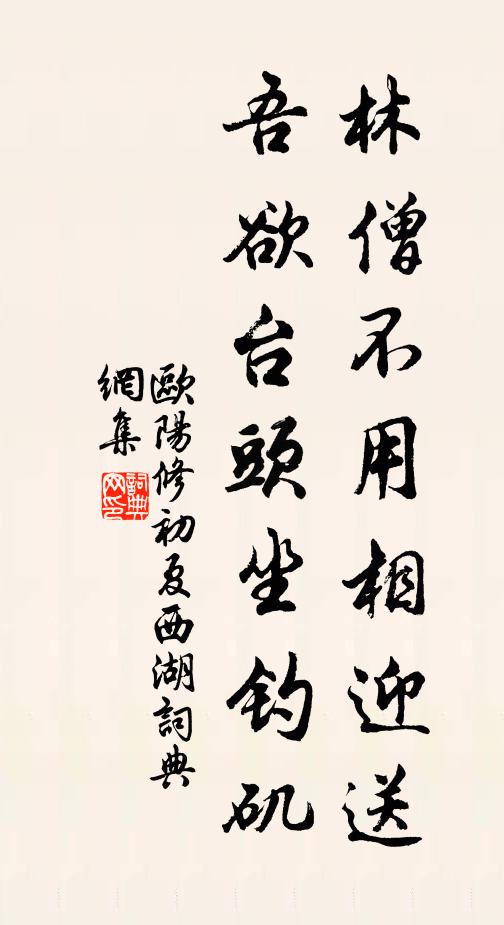 林僧不用相迎送
吾欲台頭坐钓矶
歐陽修初夏西湖詞典
網集
詞典
网印